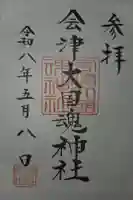 参拝
会津大国魂神社
令和八年五月八日